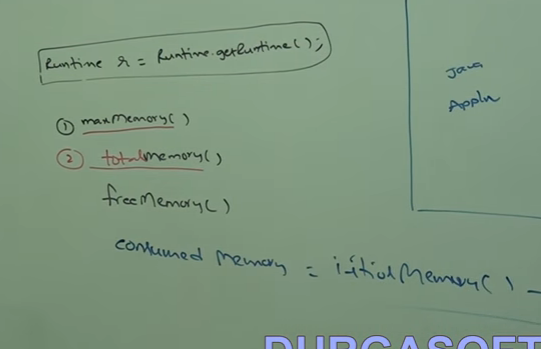 Runtime r = Runtime.getRuntime();
① maxMemory()
② totalMemory()
freeMemory()
consumed Memory = initialMemory() -
Java
Appln
DURGASOFT